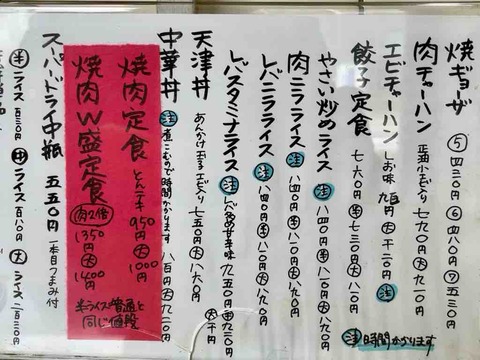 焼ギョーザ ⑤四三〇円 ⑥四八〇円 ⑦五三〇円
肉チャーハン 正油小えび入り 七九〇円 大九二〇円
エビチャーハン しお味 九百円 大千二〇円 注
餃子定食 七六〇円 半七三〇円 大八一〇円
やさい炒めライス 注 八四〇円 半八一〇円 大八九〇円
肉ニラライス 注 八四〇円 半八一〇円 大八九〇円
レバニラライス 注 八四〇円 半八一〇円 大八九〇円
レバスタミナライス 注 甘辛味 九五〇円 半九二〇円 大千円
天津丼 あんかけ玉子エビ入り 七五〇円 大八六〇円
中華丼 注 煮こむので時間かかります 八百円 大九二〇円
焼肉定食 とんニキ 950円 大1000円
焼肉W盛定食 肉2倍 1350円 大1400円
半ライス普通と
同じ値段
スーパードライ中瓶 五五〇円 一本目つまみ付
半ライス 百三〇円 中ライス 百八〇円 大ライス 二百三〇円
注時間かかります